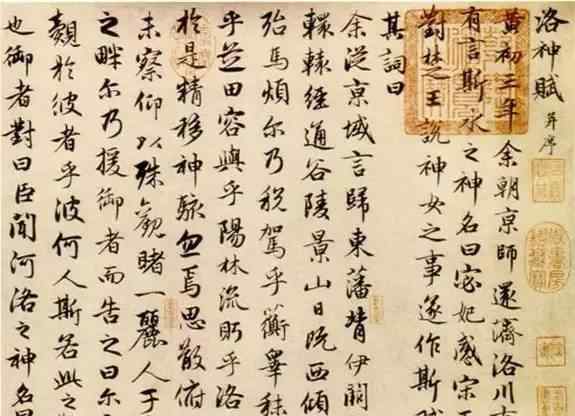 洛神賦 并序
黃初三年余朝京師還濟洛川
有言斯水之神名曰宓妃感宋玉
對楚之王說神女之事遂作斯賦
其詞曰
余從京域言歸東藩背伊闕
轘轅經通谷陵景山日既西傾
殆馬煩尔乃稅駕乎蘅皋秣
乎芝田容與乎陽林流眄乎洛
於是精移神駭忽焉思散俯
未察仰以殊觀睹一麗人于
之畔尔乃援御者而告之曰尔
覿於彼者乎彼何人斯若此之
也御者對曰臣聞河洛之神名